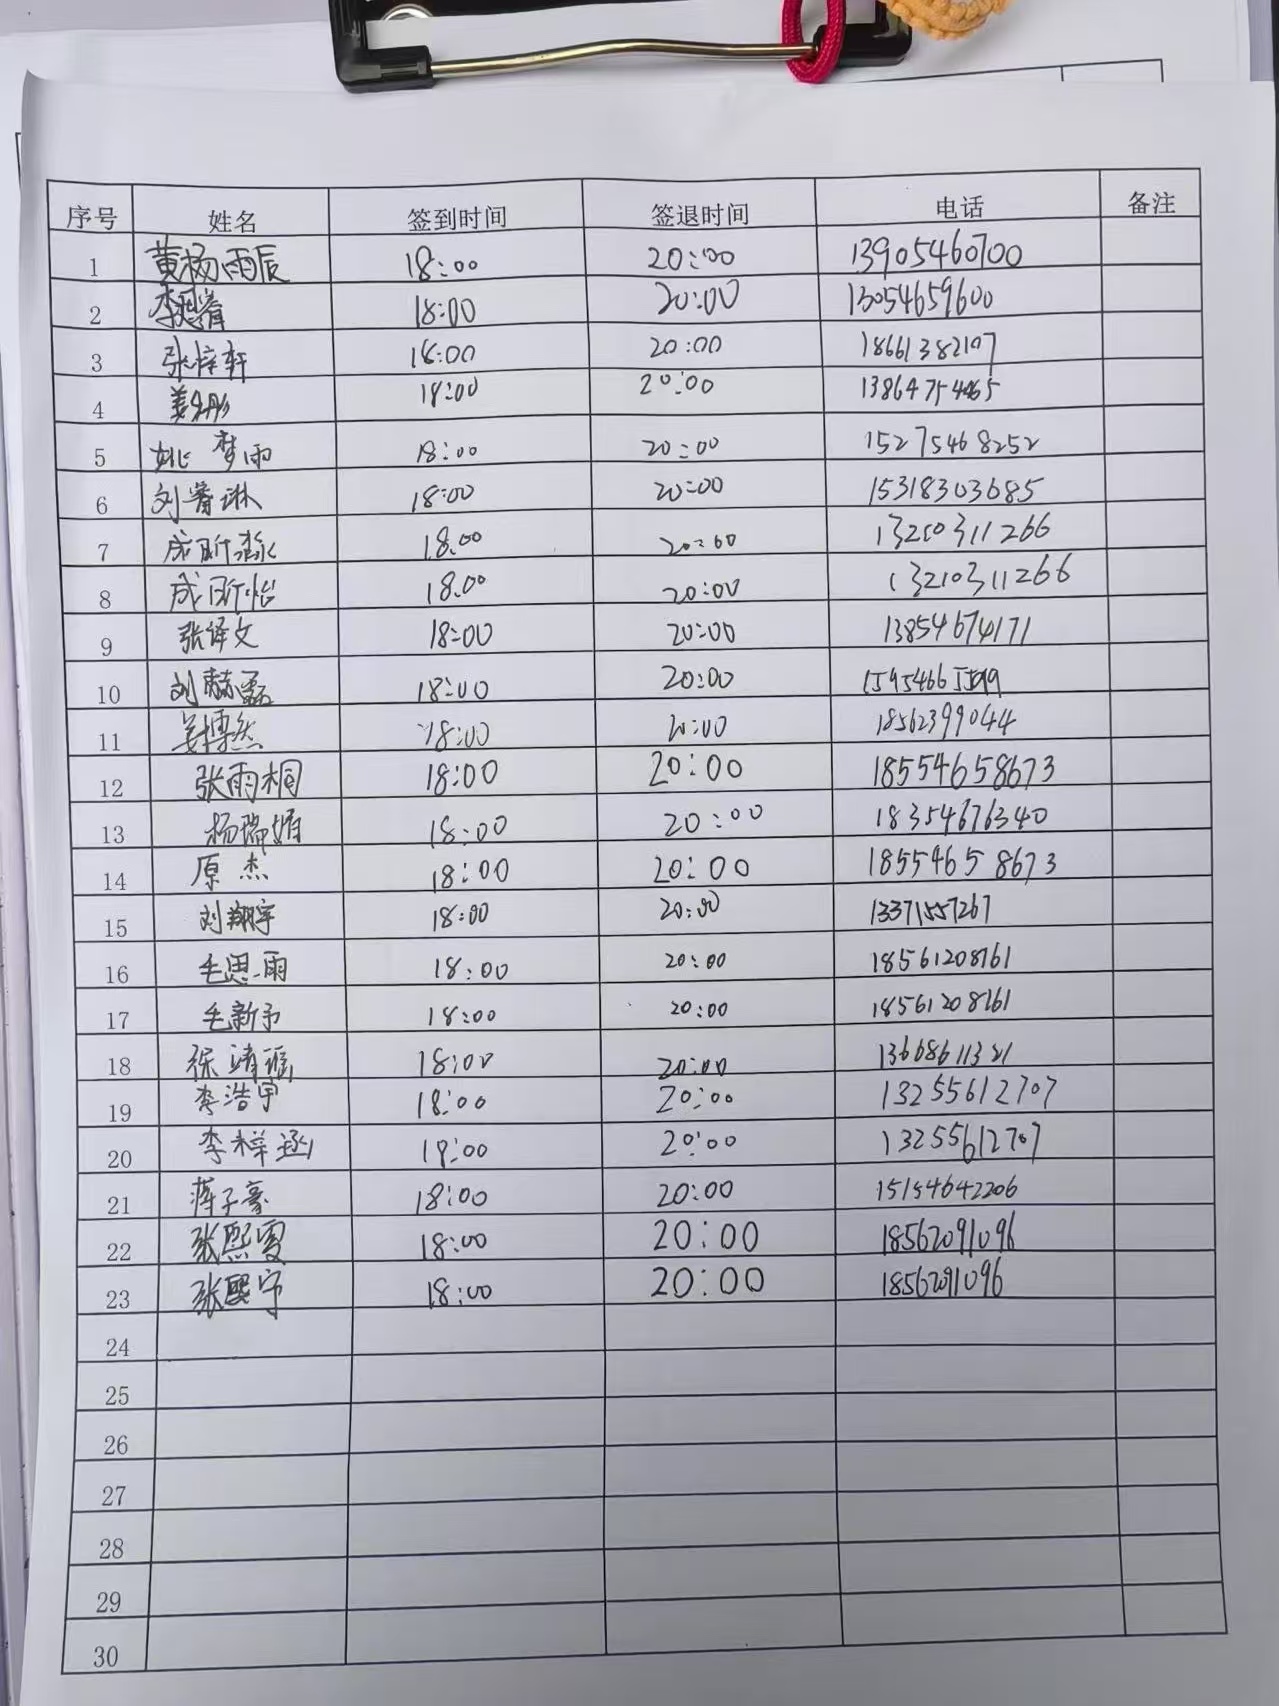 序号 姓名 签到时间 签退时间 电话 备注
1 黄杨雨辰 18:00 20:00 13905460700
2 18:00 20:00 13054659600
3 张梓轩 18:00 20:00 18661382107
4 18:00 20:00
5 姚梦雨 18:00 20:00 15275468252
6 刘睿琳 18:00 20:00 15318303685
7 成昕淼 18:00 20:00 13210311266
8 成昕怡 18:00 20:00 13210311266
9 张译文 18:00 20:00 13854674171
10 刘赫磊 18:00 20:00
11 姜博然 18:00 20:00 18562399044
12 张雨桐 18:00 20:00 18554658673
13 杨瑞娟 18:00 20:00 18354676340
14 原杰 18:00 20:00 18554658673
15 刘翔宇 18:00 20:00 13371557267
16 毛思雨 18:00 20:00 18561208761
17 毛新予 18:00 20:00 18561208761
18 徐靖瑶 18:00 20:00 13668611321
19 李浩宇 18:00 20:00 13255612707
20 李梓丞 18:00 20:00 13255612707
21 蒋子豪 18:00 20:00 15154642206
22 张熙雯 18:00 20:00 18562091096
23 张熙宁 18:00 20:00 18562091096
24
25
26
27
28
29
30